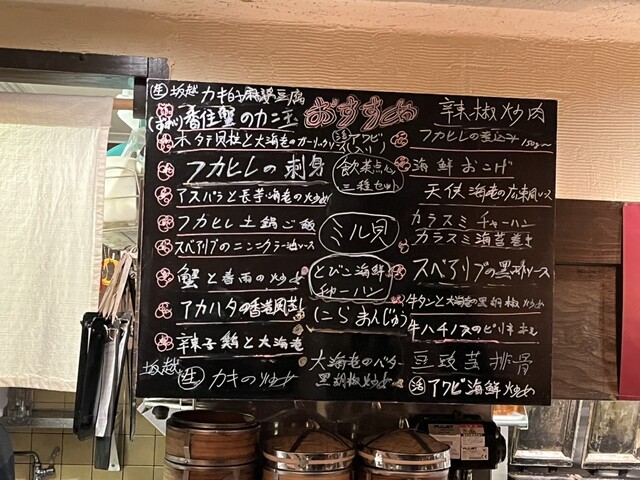 生 坂越 カキ白子麻婆豆腐
香住蟹のカニ玉
ホタテ貝柱と大海老のガーリック
フカヒレの刺身
アスパラと長芋海老の炒め
フカヒレ土鍋ご飯
スペアリブのニンニク醤油ソース
蟹と春雨の炒め
アカハタの香港風蒸し
辣子鶏と大海老
坂越 生 カキの炒め
おすすめ
活 アワビ
飲茶点心
三種セット
ミル貝
とびこ海鮮
チャーハン
にらまんじゅう
大海老のバター
黒胡椒炒め
辣椒炒肉
フカヒレの煮込み
海鮮おこげ
天使海老の広東風ソース
カラスミチャーハン
カラスミ海苔巻き
スペアリブの黒酢ソース
牛タンと大海老の黒胡椒炒め
牛ハチノスのピリ辛
豆豉蒸排骨
活 アワビ海鮮炒め